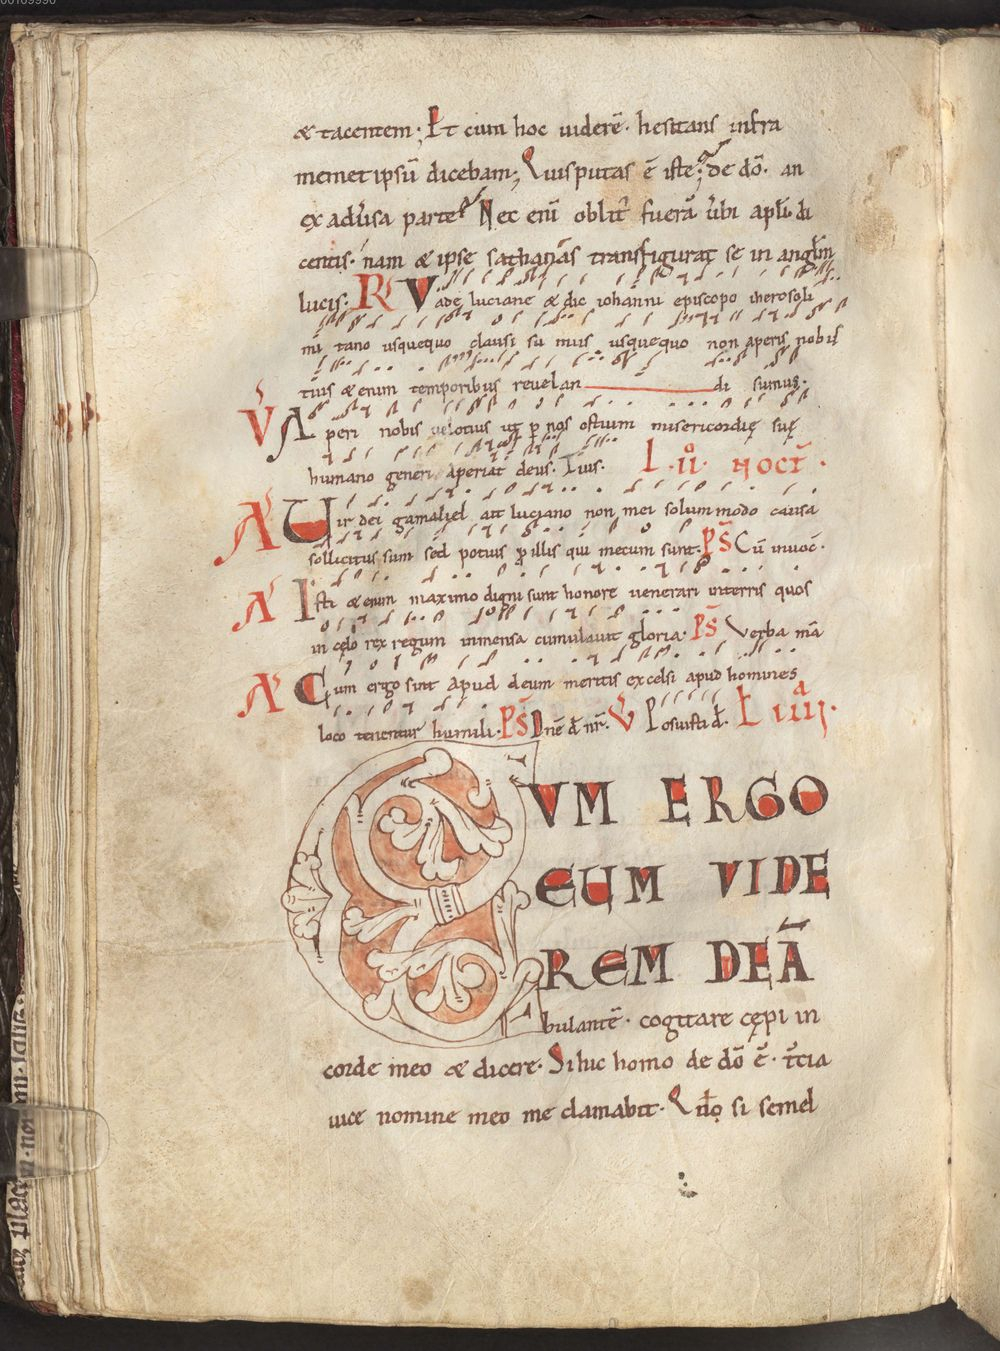 & tacentem; Et cum hoc uiderē· hesitans infra
memetipsū dicebam; Quisputas ē iste; de dō· an
ex aduersa parte? Nec enī oblit' fuerā ubi apłi di
centis· nam & ipse sathanas transfigurat se in angłm
lucis· R Vade luciane & dic iohanni episcopo iherosoli
mi tano usquequo clausi su mus usquequo non aperis nobis
tuis & enim temporibus revelan di sumus·
V Aperi nobis uelocius ut p nos ostium misericordię suę
humano generi aperiat deus· Tuis· I· IĪ· NOCT̄·
A Uir dei gamaliel ait luciano non mei solummodo causa
sollicitus sum sed potius p illis qui mecum sunt· PS̄ Cū inuoc̄·
A Isti & enim maximo digni sunt honore uenerari interris quos
in cęlo rex regum inmensa cumulauit gloria· PS̄ Verba mā
A Cum ergo sint apud deum meritis excelsi apud homines
loco tenentur humili· PS̄ Dnē d̄ nr̄· V Posuisti d̄· Ł IIII·
CVM ERGO
EUM VIDE
REM DEĀ
bulantē· cogitare cępi in
corde meo & dicere· Si hic homo de dō ē· t'cia
uice nomine meo me clamabit· Qdo si semel